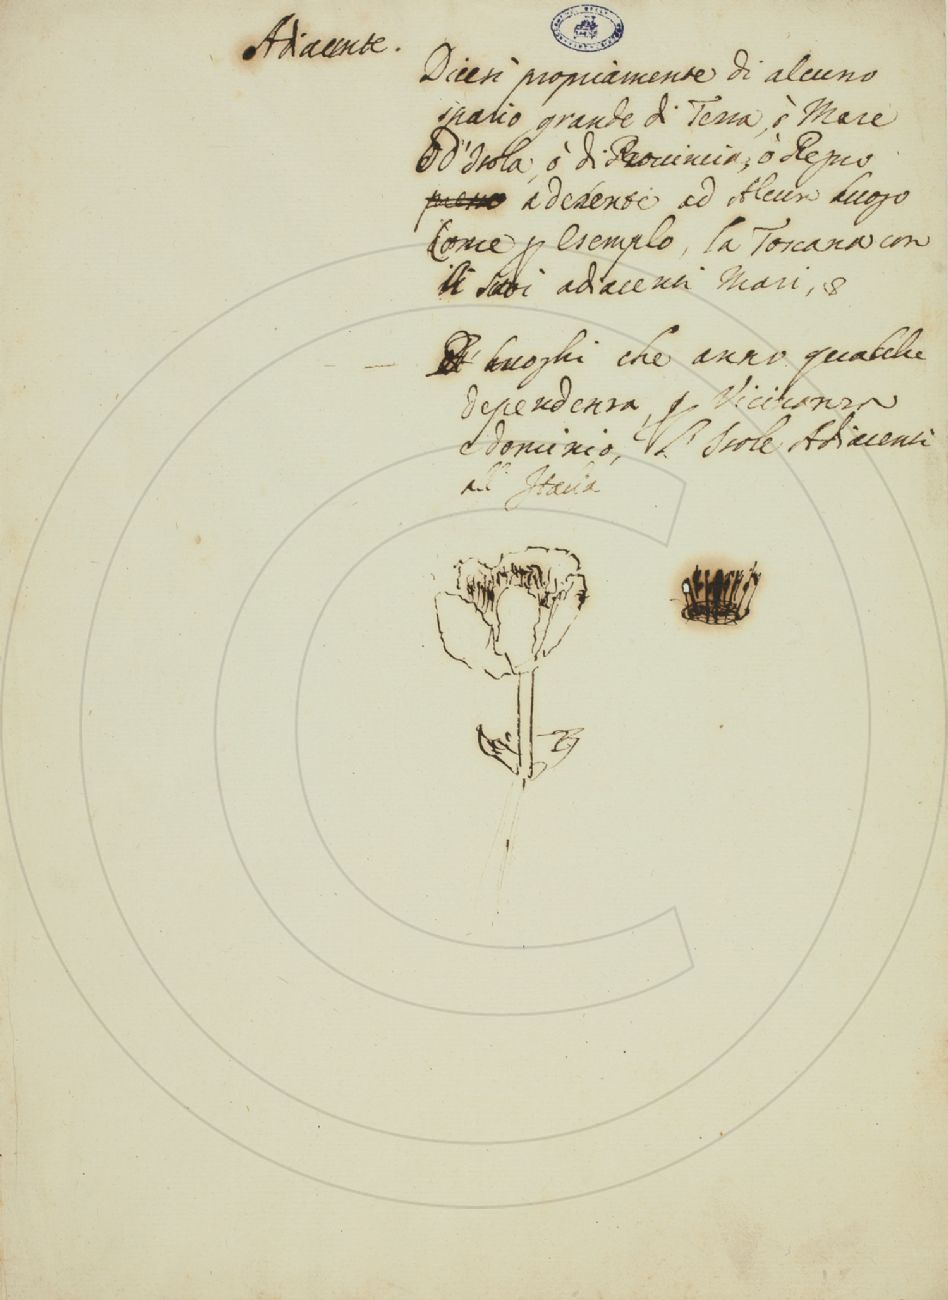 Adiacente.
Dicesi propriamente di alcuno
spatio grande di Terra, ò Mare
ò d'Isola, ò di Prouincia, ò Regno
aderente ad Alcun luogo
Come p Esempio, la Toscana con
li suoi adiacenti Mari, &
luoghi che anno qualche
dependenza, p Vicinanza
e dominio, L' Isole Adiacenti
all' Italia